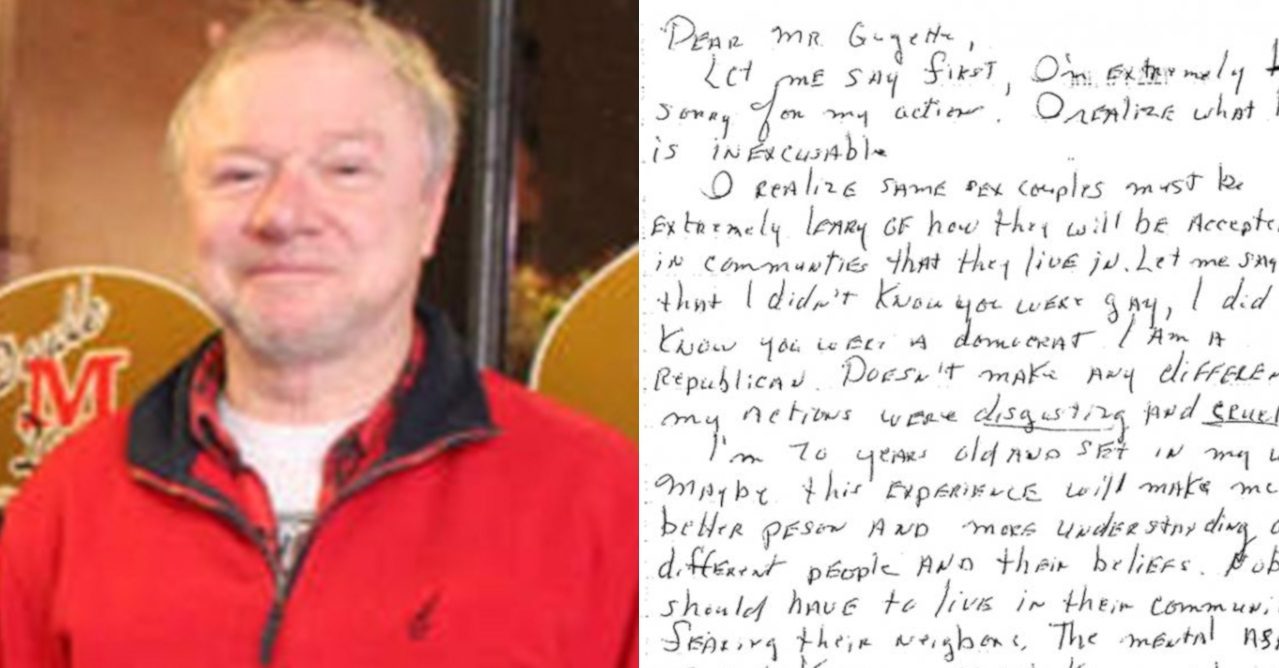 Double
M
DEAR MR Gugette,
Let ME SAY first, I'm EXTREMELY
sorry for my action. I REALIZE what
is INEXCUSABLE
I REALIZE SAME SEX couples must be
EXTREMELY LEARY OF how they will BE Accepte
in communties that they live in. Let me SAY
that I didn't KNOW you WERE gay, I did
KNOW you WERE A domocrat I AM A
REPUBLICAN. DOESN'T MAKE ANY differen
my ACTIONS WERE disgusting AND CRUEL
I'm 70 years old AND SET IN my w
MAYBE this EXPERIENCE will make me
better PESON AND more UNDERSTANDING o
different people AND their beliefs. Nob
should HAVE to live in their Communi
FEARING their neighbors. The mental ASS